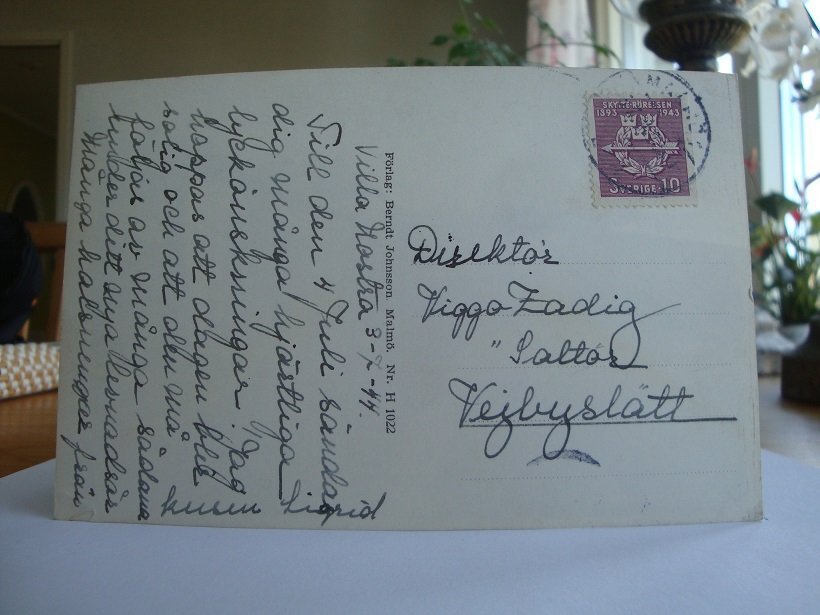 Villa Nostra 3-7-44.
Till den 4 Juli sänder jag
dig många hjärtliga
lyckönskningar. Jag
hoppas att dagen blir
solig och att den må
följas av många sådana
under ditt nya levnadsår
Många hälsningar från
kusin Sigrid
Förlag: Berndt Johnsson. Malmö. Nr. H 1022
SKYTTERÖRELSEN
1893 1943
SVERIGE 10
Direktör
Viggo Zadig
" Saltör
Vejbyslätt